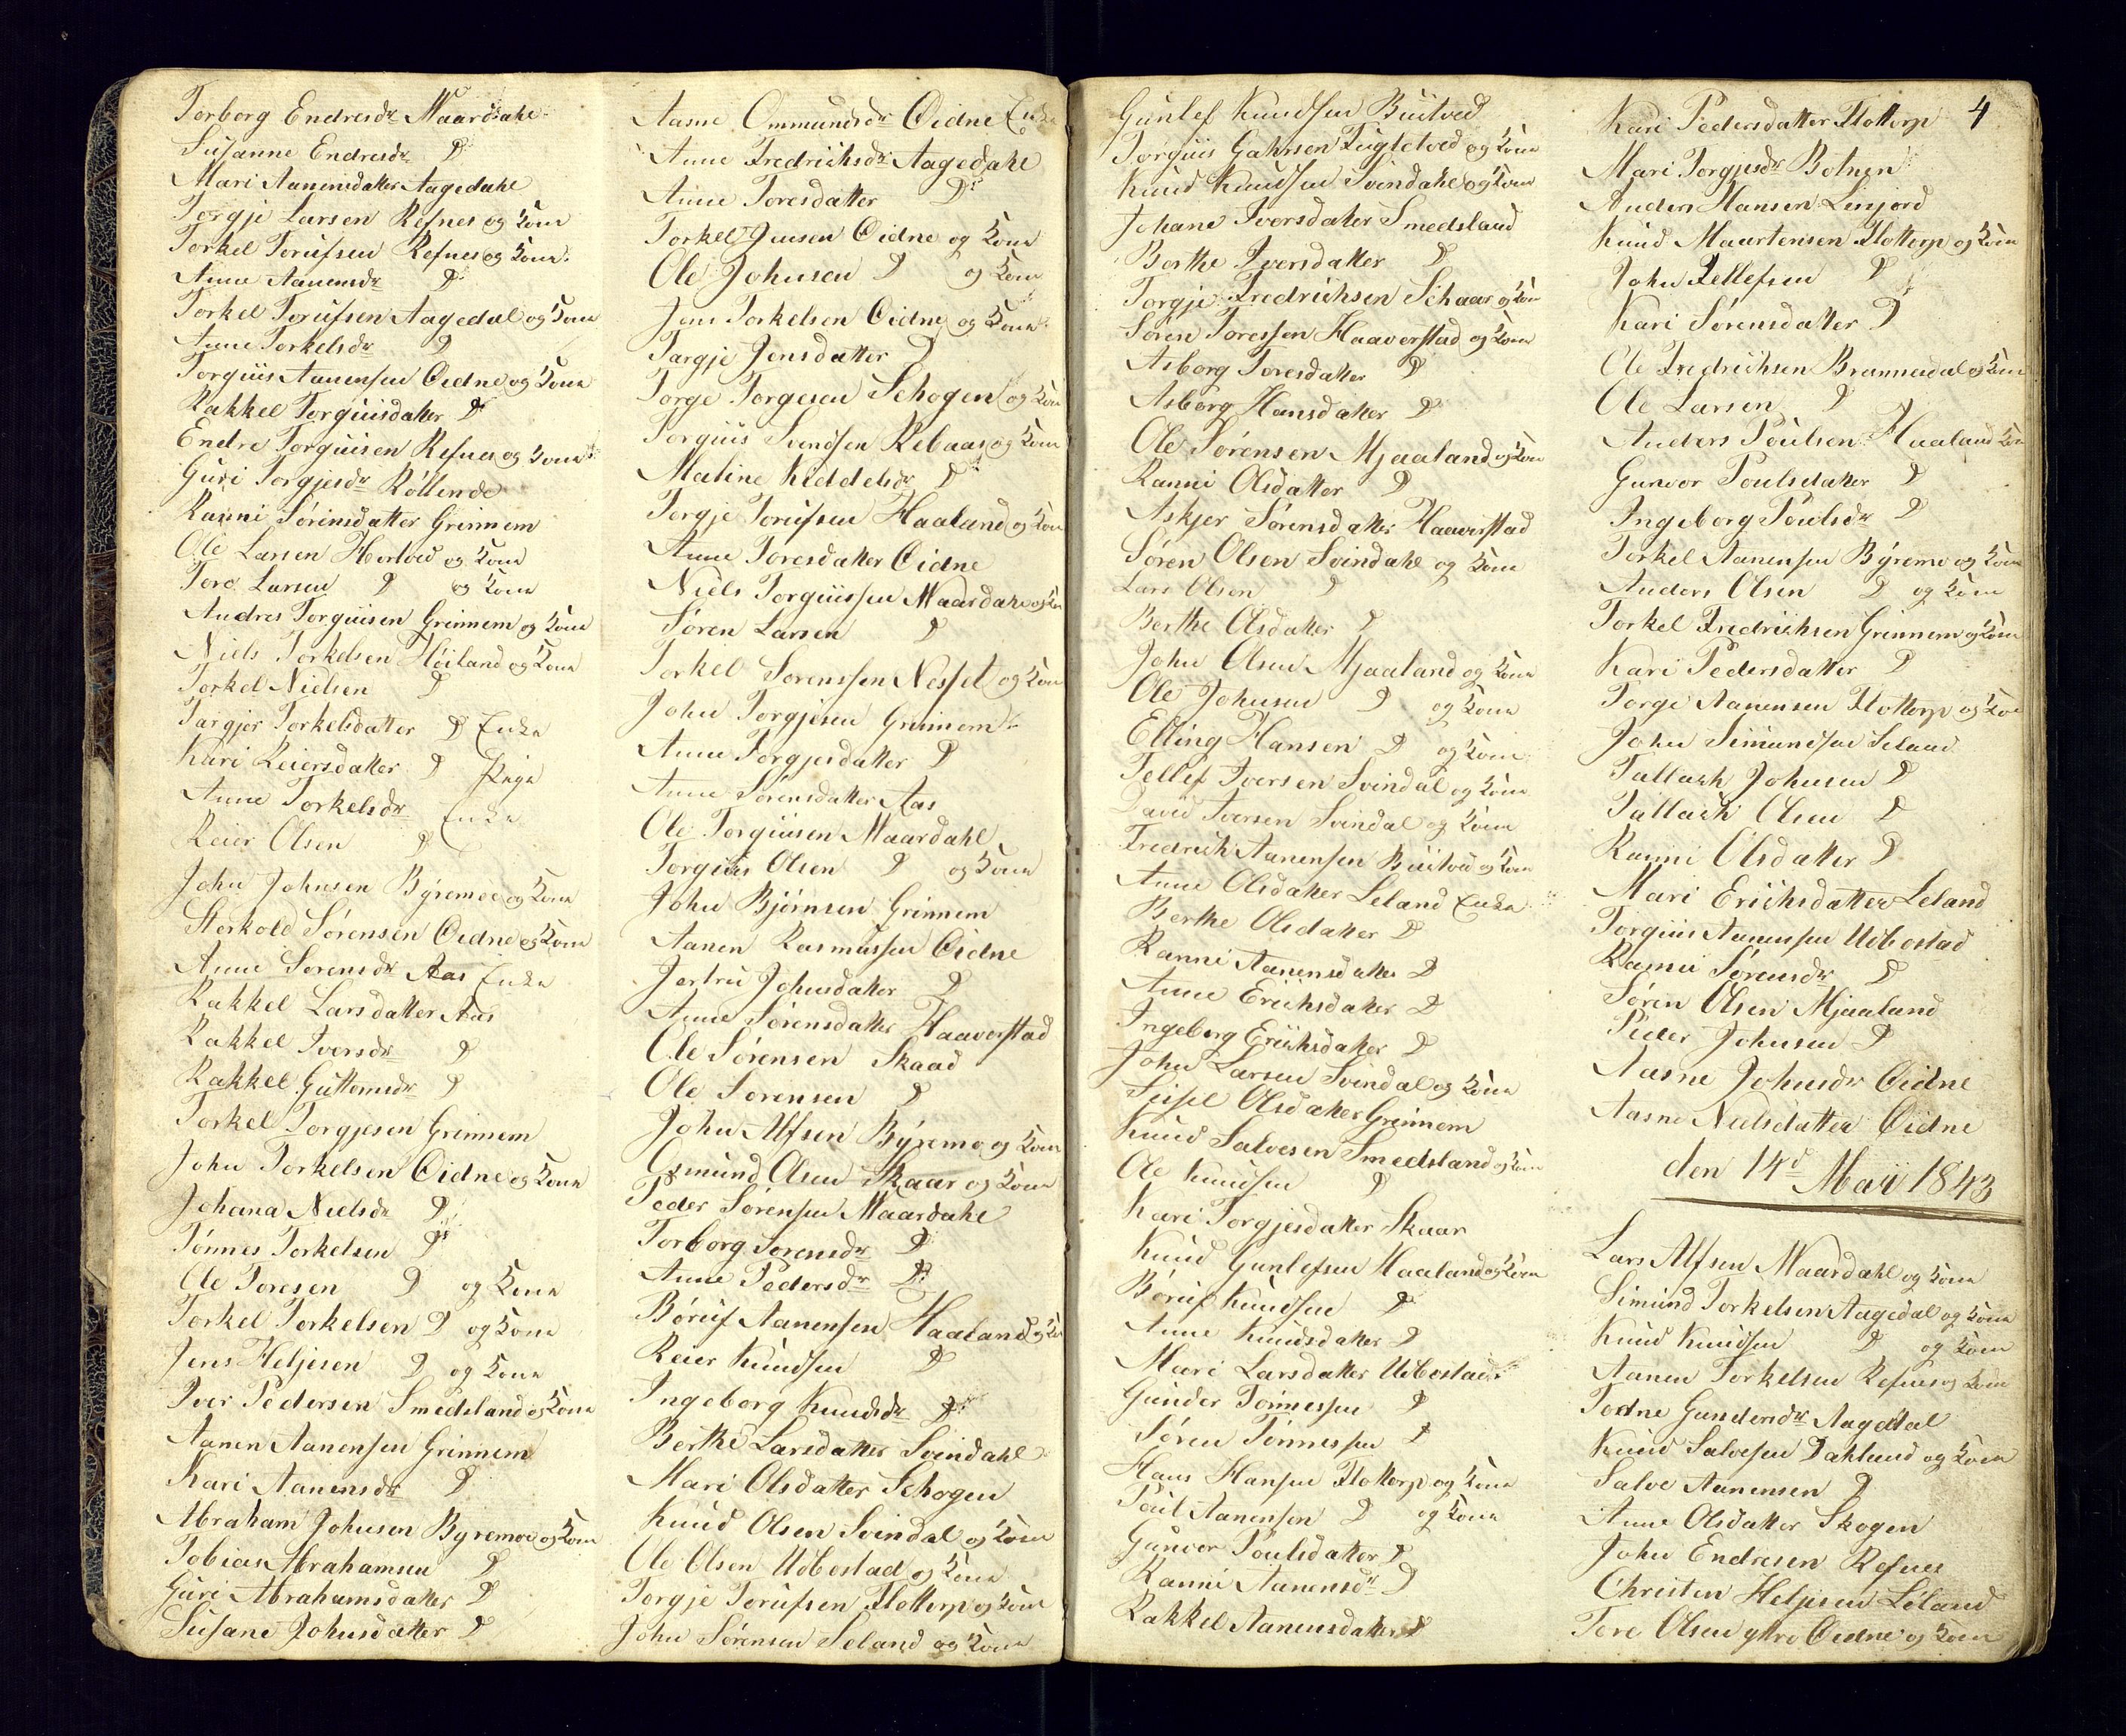 Torborg Endresdr Maardahl
Susanne Endresdr D
Mari Aanensdatter Aagedahl
Torgje Larsen Refnes og Kone
Torkel Torufsen Refnes og Kone
Anne Aanensdr D
Torkel Torufsen Aagedal og Kone
Anne Torkelsdr D
Torguis Aanensen Oidne og Kone
Rakkel Torguisdatter D
Endre Torguisen Refnes og Kone
Guri Torgjesdr Röllende
Ranni Sörensdatter Grinnem
Ole Larsen og Kone
Tore Larsen D og Kone
Andres Torguisen Grinnem og Kone
Niels Torkelsen Höiland og Kone
Torkel Nielsen D
Targjer Torkelsdatter D Enke
Kari Reiersdatter D Pige
Anne Torkelsdr Enke
Reier Olsen D
John Johnsen Byremoe og Kone
Storkold Sörensen Oidne og Kone
Anne Sorensdr Aas Enke
Rakkel Larsdatter Aas
Rakkel Iversdr D
Rakkel Guttomsdr D
Torkel Torgjesen Grinnem
John Torkelsen Oidne og Kone
Johana Nielsdr D
Tönnes Torkelsen D
Ole Toresen D og Kone
Torkel Torkelsen D og Kone
Jens Heljesen D og Kone
Iver Pedersen Smedsland og Kone
Aanen Aanensen Grinnem
Kari Aanensdr D
Abraham Johnsen Byremoe og Kone
Tobias Abrahamsen D
Guri Abrahamsdatter D
Susane Johnsdatter D
Aasne Ommundsdr Oidne Enke
Anne Fredrichsdr Aagedahl
Anne Toresdatter D
Torkel Jensen Oidne og Kone
Ole Johnsen D og Kone
Jens Torkelsen Oidne og Kone
Targje Jensdatter D
Torge Torgesen Schogen og Kone
Torguis Svendsen Rebaas og Kone
Maline Keddelsdr D
Torgje Torufsen Haaland og Kone
Anne Toresdatter Oidne
Niels Torguissen Maardahl og Kone
Sören Larsen D
Torkel Sorenssen Nesset og Kone
John Torgjesen Grinnem
Anne Torgjesdatter D
Anne Sörensdatter Aas
Ole Torguisen Maardahl
Torguis Olsen D og Kone
John Björnsen Grinnem
Aanen Rasmussen Oidne
Jertru Johnsdatter D
Anne Sörensdatter Haaverstad
Ole Sörensen Skaad
Ole Sorensen D
John Alfsen Byremo og Kone
Osmund Olsen Skaar og Kone
Peder Sörensen Maardahl
Torborg Sorensdr D
Anne Pedersdr D
Böruf Aanensen Haaland og Kone
Reier Knudsen D
Ingeborg Knudsdr D
Berthe Larsdatter Svindahl
Mari Olsdatter Schogen
Knud Olsen Svindal og Kone
Ole Olsen Udbostad og Kone
Torgje Torufsen Flottorp og Kone
John Sörensen Seland og Kone
Gunlef Knudsen Buitved
Torguis Gahrsen Fugletved og Kone
Knud Knudsen Svindahl og Kone
Johane Iversdatter Smedsland
Berthe Iversdatter D
Torgje Fredrichsen Schaar og Kone
Sören Toressen Haaverstad og Kone
Asborg Toresdatter D
Asborg Hansdatter D
Ole Sörensen Mjaaland og Kone
Ranni Olsdatter D
Askjer Sörensdatter Haaverstad
Sören Olsen Svindahl og Kone
Lars Olsen D
Berthe Olsdatter D
John Olsen Mjaaland og Kone
Ole Johnsen D og Kone
Elling Hansen D og Kone
Tellef Iversen Svindal og Kone
David Iversen Svindal og Kone
Fredrich Aanensen Buitved og Kone
Anne Olsdatter Leland Enke
Berthe Olsdatter D
Ranni Aanensdatter D
Anne Erichsdatter D
Ingeborg Erichsdatter D
John Larsen Svindal og Kone
Sissel Olsdatter Grinnem
Knud Salvesen Smedsland og Kone
Ole Knudsen D
Kari Torgjesdatter Skaar
Knud Gunlefsen Haaland og Kone
Böruf Knudsen D
Anne Knudsdatter D
Mari Larsdatter Udbostad
Gunder Tönnessen D
Sören Tönnessen D
Hans Hansen Flottorp og Kone
Poul Aanensen D og Kone
Gunvor Poulsdatter D
Ranni Aanensdr D
Rakkel Aanensdatter D
4
Kari Pedersdatter Flottorp
Mari Torgjesdr Botnen
Anders Hansen Linjord
Knud Maartensen Flottorp og Kone
John Tellefsen D
Kari Sörensdatter D
Ole Fredrichsen Brannsdal og Kone
Ole Larsen D
Anders Poulsen Haaland Kone
Gunvor Poulsdatter D
Ingeborg Poulsdr D
Torkel Aanensen Byremo og Kone
Anders Olsen D og Kone
Torkel Fredrichsen Grinnem og Kone
Kari Pedersdatter D
Torge Aanensen Flottorp og Kone
John Simundsen Seland
Tallach Johnsen D
Tallach Olsen D
Ranni Olsdatter D
Mari Erichsdatter Leland
Torguis Aanensen Udbostad
Ranni Sörensdr D
Sören Olsen Mjaaland
Peder Johnsen D
Aasne Johnsdr Oidne
Aasne Nielsdatter Oidne
den 14d Mai 1843
Lars Alfsen Maardahl og Kone
Simund Torkelsen Aagedal og Kone
Knud Knudsen D og Kone
Aanen Torkelsen Refnes og Kone
Todne Gundersdr Aagedal
Knud Salvesen Dahland og Kone
Salve Aanensen D
Anne Olsdatter Skogen
John Endresen Refnes
Christen Heljesen Leland
Tore Olsen ytre Oidne og Kone